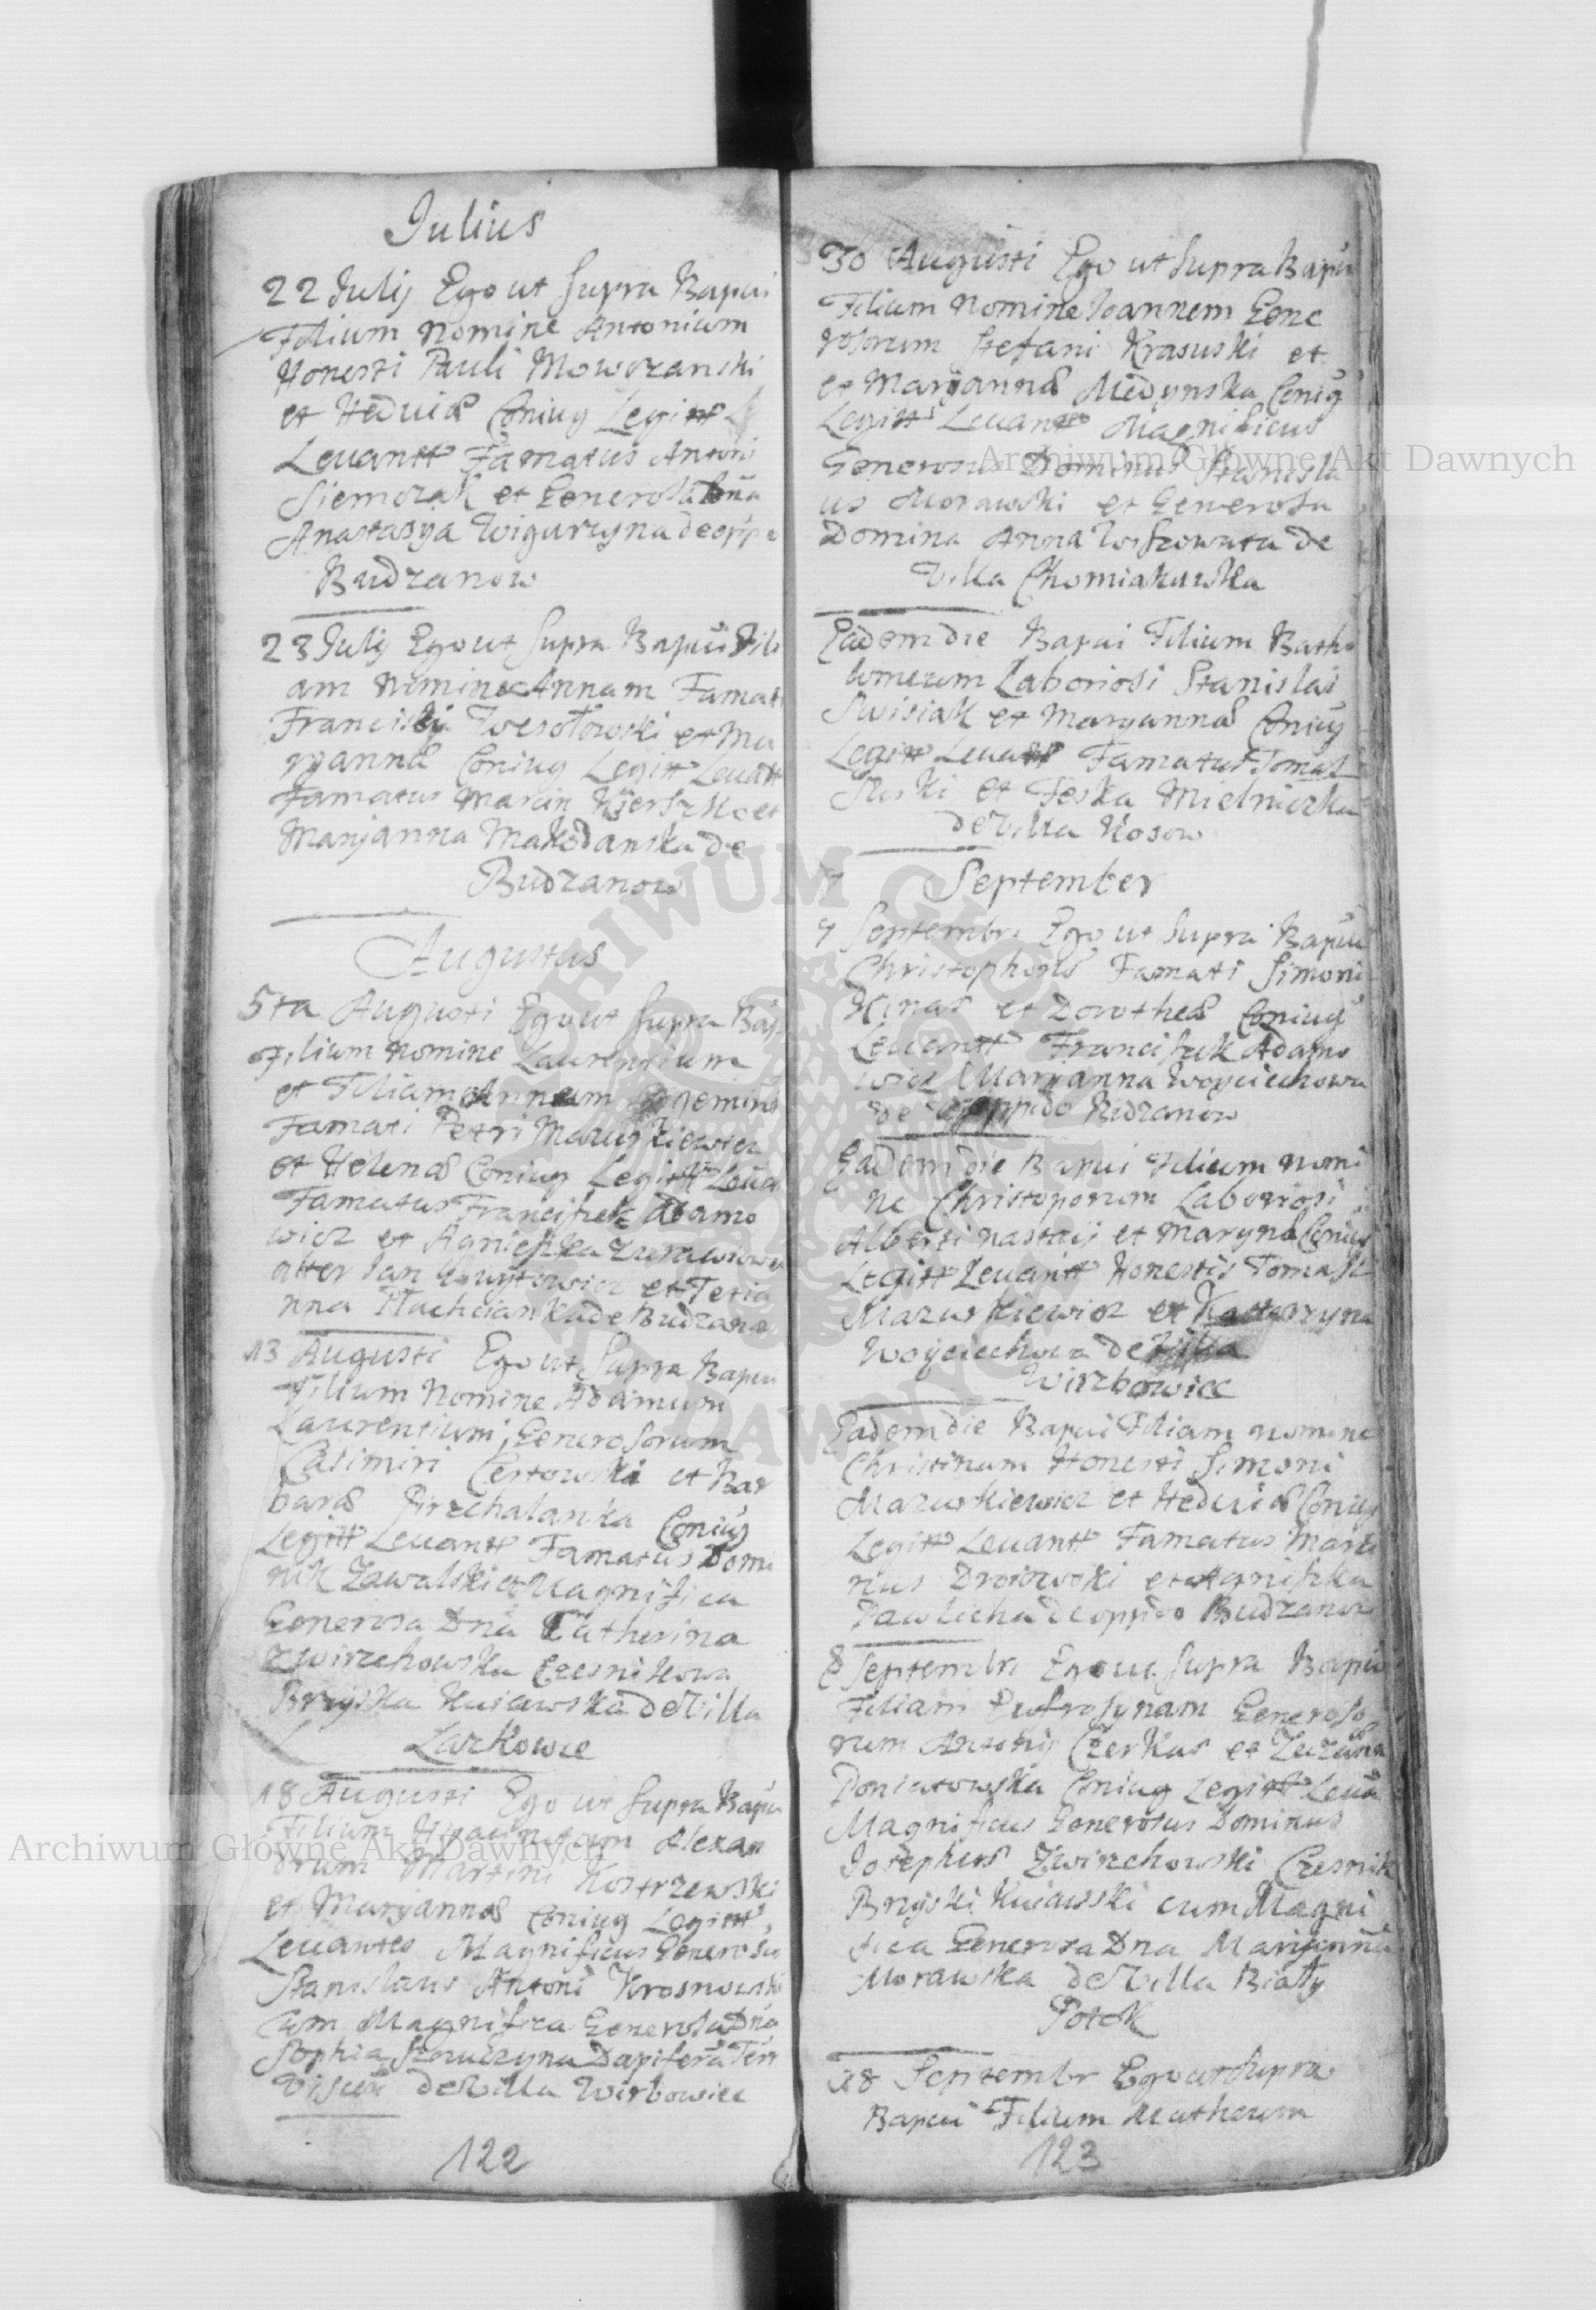 Iulius
22 Julij Ego ut supra Bapui
Filium Nomine Antonium
Honesti Pauli Mowozanski
et Hedvig Coniug Legitt
Levantt Famatus Antoni
Siemozak et Generosa Dna
Anastasya Wiguryna de
Budzanow
23 Julij Ego ut supra Bapui Fili
am Nomine Annam Famati
Franciski Wesołowski et Ma
ryanna Coniug Legitt Levatt
Famatus Marcin et
Maryanna Makodanska de
Budzanow
Augustus
5ta Augusti Ego ut supra Bap
Filium Nomine Laurentium
et Filiam Annam gemins
Famati Petri Mazurkiewicz
et Helena Coniug Legitt Leva
Famatus Franciszek Adamo
wicz et Agnieszka
alter Jan et Tetia
nna de Budzano
13 Augusti Ego ut supra Bapui
Filium Nomine Adamum
Laurentium, Generosorum
Casimiri Certowski et Bar
bara Pirzchalanka Coniug
Legitt Levantt Famatus Domi
nik Zawalski et Magnifica
Generosa Dna Catherina
Zwirzchowska Czesnikowa
Brzyska Kuiawska de Villa
Laskowce
18 Augusti Ego ut supra Bapui
Filium Alexan
drum Martini Kostrzewski
et Maryanna Coniug Legitt,
Levantes Magnificus Generosus
Stanislaus Antoni Krosnowski
Cum Magnifica Generosa Dna
Sophia Dapifera Terr
de Villa Wirbowiec
122
30 Augusti Ego ut supra Bapui
Filium Nomine Ioannem Gene
rosorum Stefani Krasuski et
et Maryanna Medynska Coniug
Legitt Levantes Magnificus
Generosus Dominus Stanisla
us Morawski et Generosa
Domina Anna de
Villa Chomiakuwka
Eadem die Bapui Filium Barth
lomeum Laboriosi Stanislai
Swisiak et Maryanna Coniug
Legitt Levatt Famatus Tomas
et Feska Mielniczka
de Villa Kosow
7 September
7 Septembr Ego ut supra Bapui
Famati Simoni
Kinas et Dorothea Coniug
Levantt Franciszek Adamo
wicz Maryanna Woyciechowa
de oppido Budzanow
Eadem die Bapui Filium nomi
ne Christoporum Laboriosi
Alberti et Maryna Coniug
Legitt Levantt Honestis Tomasz
Mazurkiewicz et Kattarzyna
Woyciechowa de Villa
Wirzbowiec
Eadem die Bapui Filiam nomine
Christinam Honesti Simoni
Mazurkiewicz et Hedvig Coniug
Legitt Levantt Famatus Marti
nus et Agniszka
Pawlicha de oppido Budzanow
8 Septembr Ego ut supra Bapui
Filiam Eufrosynam Generoso
rum Antonij Czerkas et
Poniatowska Coniug Legitt Leva
Magnificus Generosus Dominus
Iosephus Zwirzchowski Czesnik
Brzyski Kuiawski cum Magni
fica Generosa Dna Maryanna
Morawska de Villa Biały
Potok
18 Septembr Ego ut supra
Bapui Filium Matheum
123
Archiwum Główne Akt Dawnych
Archiwum Główne Akt Dawnych
ARCHIWUM GŁÓWNE AKT DAWNYCH